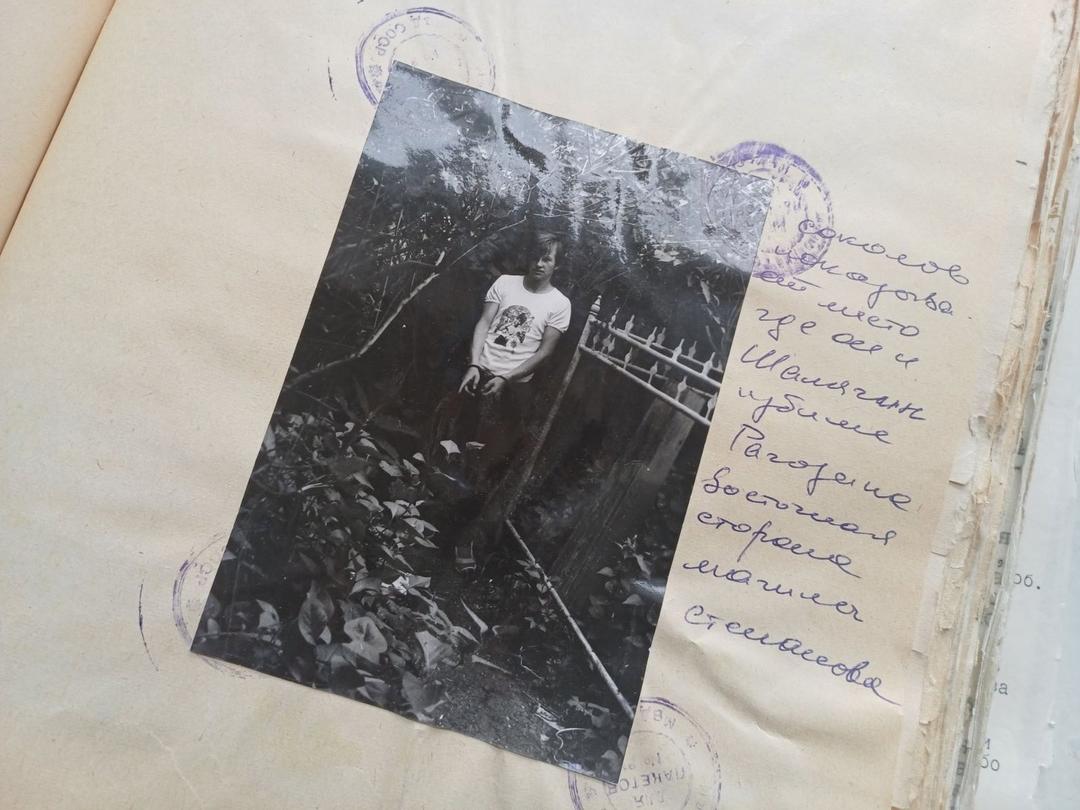 Соколов
показыва-
ет место
где он и
Шалягин
убили
Рагозина
восточная
сторона
могилы
Степанова
СССР
МВД
ДЛЯ
ПАКЕТОВ
об.